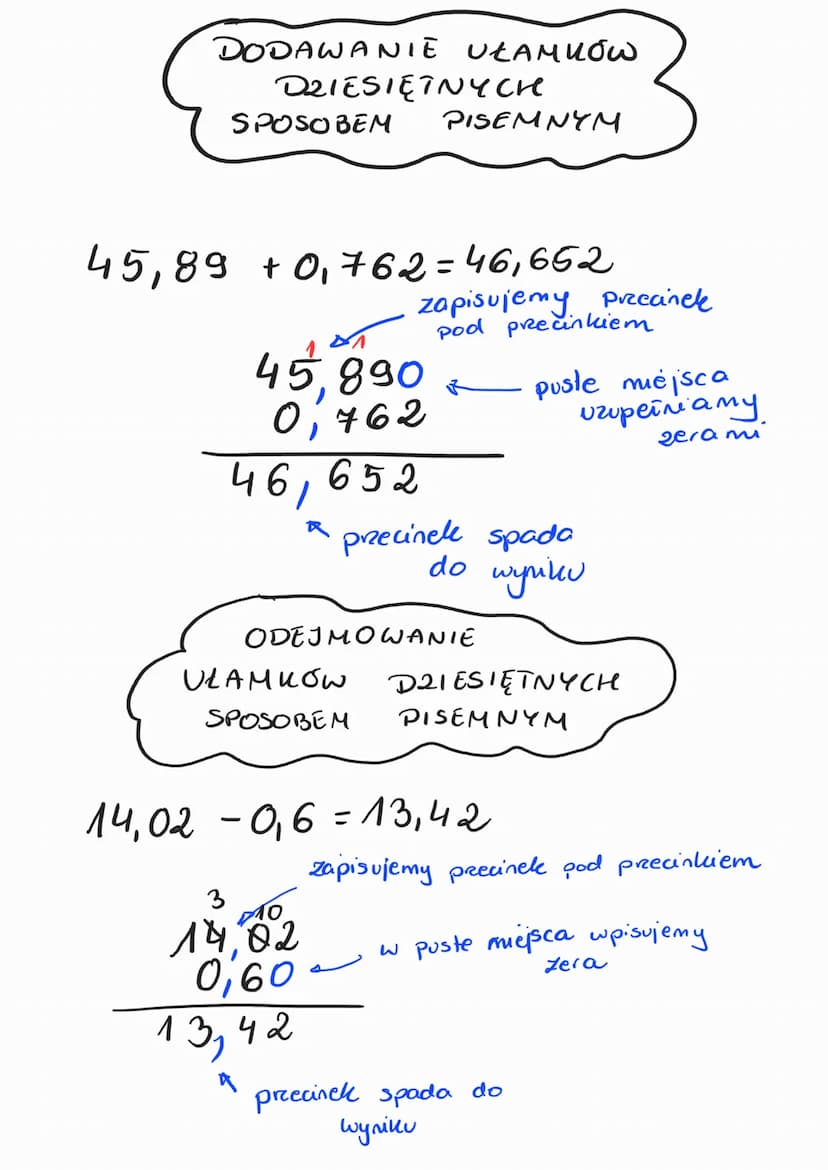 DODAWANIE UŁAMKÓW
DZIESIĘTNYCH
SPOSOBEM PISEMNYM
45,89 + 0,762 = 46,652
zapisujemy przecinek
pod przecinkiem
1 1
45,890
puste miejsca
uzupełniamy
zerami
0,762
46,652
przecinek spada
do wyniku
ODEJMOWANIE
UŁAMKÓW DZIESIĘTNYCH
SPOSOBEM PISEMNYM
14,02 - 0,6 = 13,42
zapisujemy przecinek pod przecinkiem
3 10
14,02
0,60
w puste miejsca wpisujemy
zera
13,42
przecinek spada do
wyniku